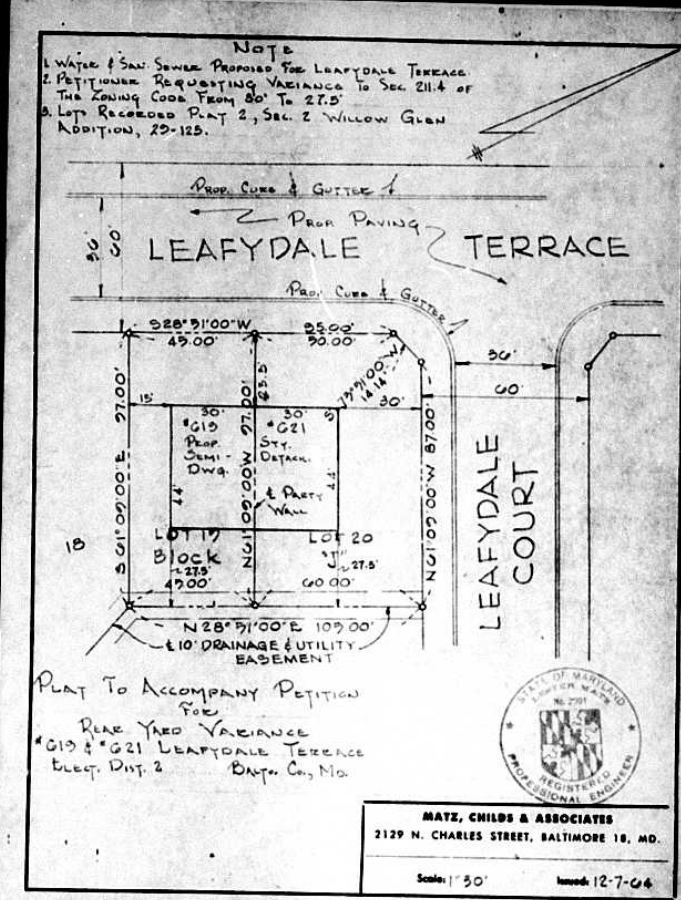 NOTE
1. WATER & SAN. SEWER PROPOSED FOR LEAFYDALE TERRACE
2. PETITIONER REQUESTING VARIANCE TO SEC. 211.4 OF
THE ZONING CODE FROM 30' TO 27.5'
3. LOTS RECORDED PLAT 2, SEC. 2 WILLOW GLEN
ADDITION, 29-125.
PROP. CURB & GUTTER
PROP. PAVING
36'
60'
LEAFYDALE TERRACE
PROP. CURB & GUTTER
S28°51'00"W
45.00'
95.00'
50.00'
36'
60'
14.14'
S 61°09'00"E 97.00'
N61°09'00"W 97.00'
N61°09'00"W 87.00'
15'
30'
30'
30'
#619
PROP.
SEMI-
DWG.
#621
STY.
DETACH.
44'
44'
℄ PARTY
WALL
LEAFYDALE
COURT
18
LOT 19
LOT 20
BLOCK
"J"
27.5'
27.5'
45.00'
60.00'
N 28°51'00"E 105.00'
℄ 10' DRAINAGE & UTILITY
EASEMENT
PLAT TO ACCOMPANY PETITION
FOR
REAR YARD VARIANCE
#619 & #621 LEAFYDALE TERRACE
ELECT. DIST. 2 BALTO. CO., MD.
STATE OF MARYLAND
LESTER MATZ
No. 2501
REGISTERED
PROFESSIONAL ENGINEER
MATZ, CHILDS & ASSOCIATES
2129 N. CHARLES STREET, BALTIMORE 18, MD.
Scale: 1"=30'
Issued: 12-7-64